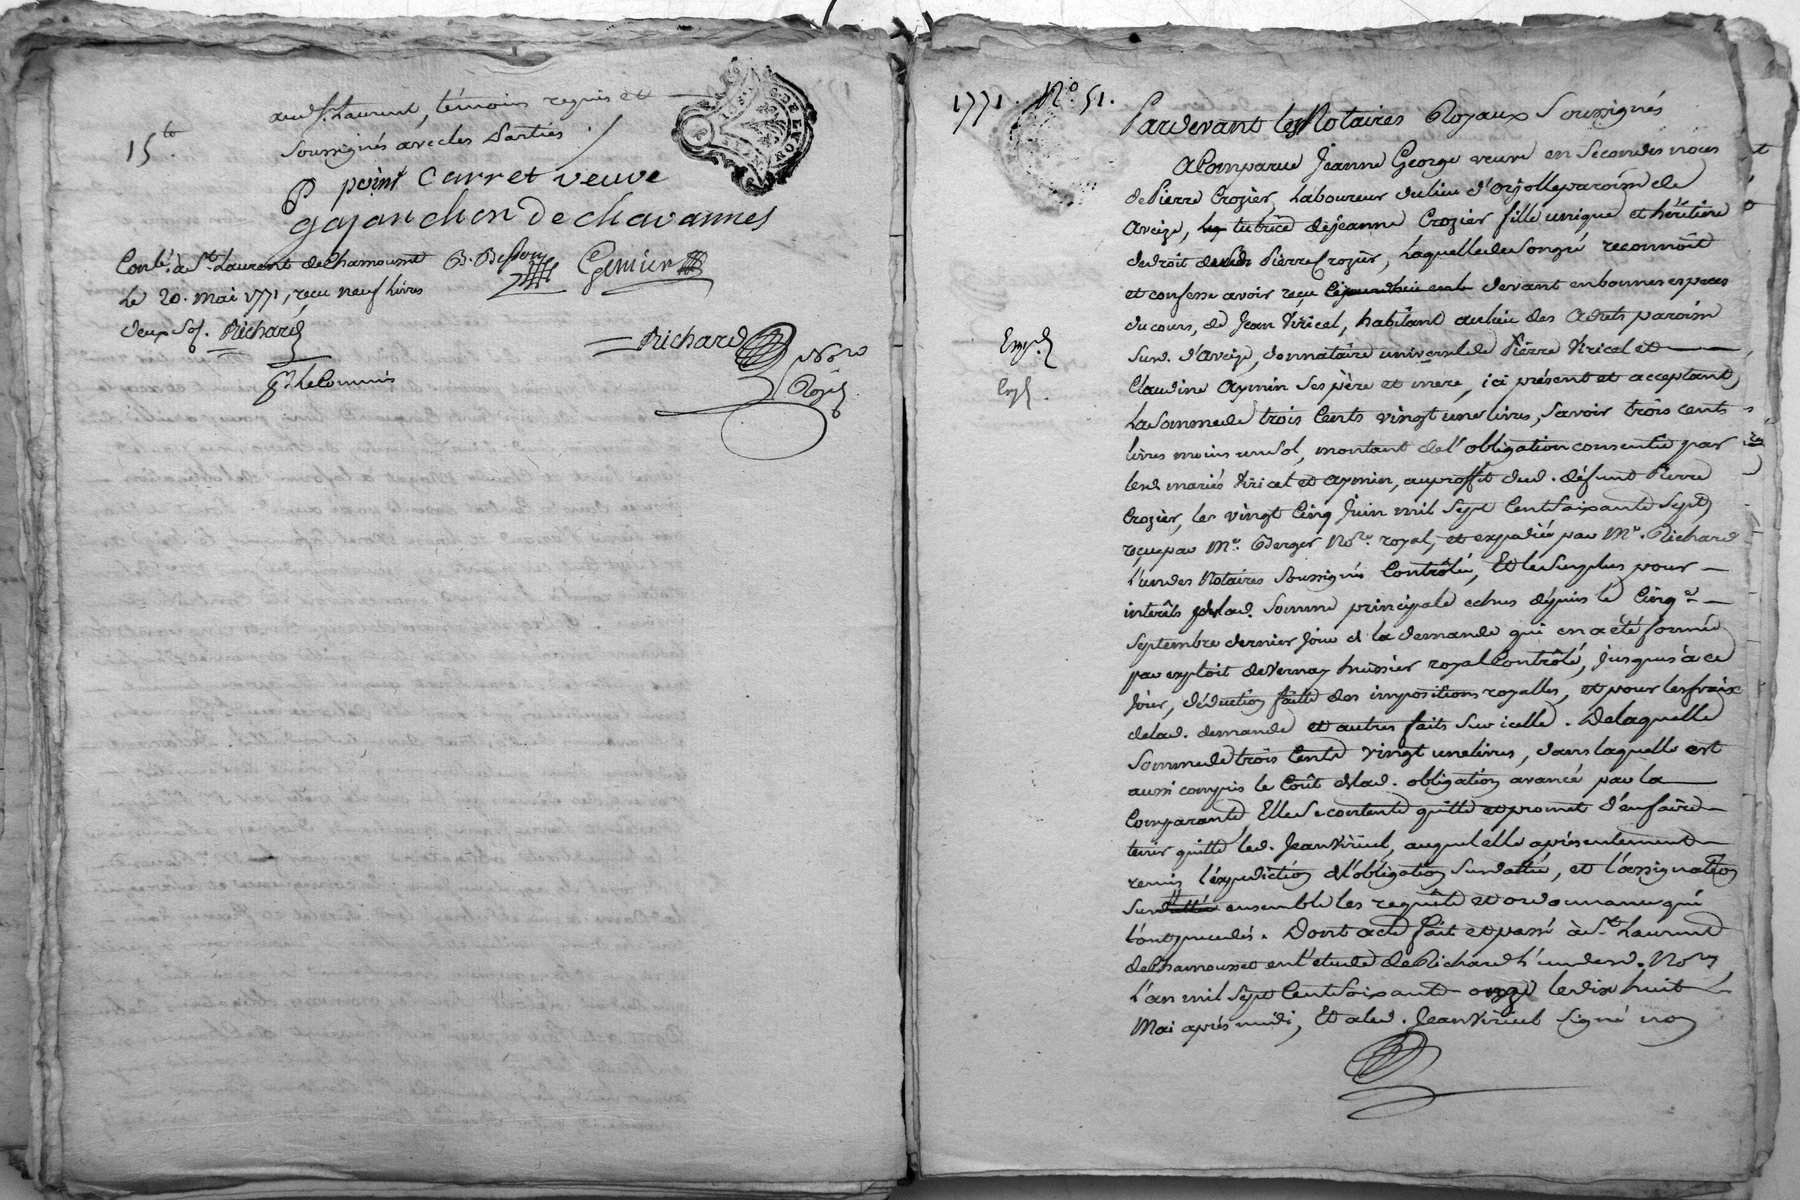 aud. St. Laurent, témoins requis et
15te.
soussignés avec les Parties ./.
point Carret veuve
gajanchon De chavannes
Conlé. à St. Laurent de Chamousset
Le 20. mai 1771, reçu neuf livres
deux sol. Richard
pr. Le Commis
Richard
Nore
Royal
1771. No. 51.
Pardevant les Notaires Royaux Soussignés
A Comparue Jeanne George veuve en secondes nôces
de Pierre Crozier, Laboureur du lieu d'orjolle paroisse de
Aveize, tutrice de jeanne Crozier fille unique et héritière
de droit dud. Pierre Crozier, Laquelle de son gré reconnoît
et confesse avoir reçu devant en bonnes especes
du cours, de Jean Viricel, habitant au lieu des Adrets paroisse
Susd. d'Aveize, donnataire universel de Pierre Viricel et
Claudine Aymin ses père et mere, ici présent et acceptant,
La somme de trois Cents vingt une livres, savoir trois cents
livres moins un sol, montant de l'obligation consentie par
lesd. mariés Viricel et aymin, au proffit dud. défunt Pierre
Crozier, le vingt Cinq Juin mil Sept Cent Soixante Sept,
reçue par Me. Berger Nore. royal, et expediée par Me. Richard
L'un des Notaires Soussignés Contrôlée, Et le Surplus pour
interêts de lad. somme principale echus depuis le Cinq
Septembre dernier jour de la demande qui en a été formée
par exploit de Vernay huissier royal Contrôlé, jusques à ce
jour, déduction faitte des impositions royalles, et pour les fraix
de lad. demande et autres faits sur icelle. De laquelle
Somme de trois Cents vingt une livres, dans laquelle est
aussi compris le Coût de lad. obligation avancé par la
Comparante, Elle se contente quitte et promet d'en faire
tenir quitte led. Jean Viricel, auquel elle a présentement
remis l'expédiction de l'obligation Surdattée, et l'assignation
ensemble les requête et ordonnance qui
l'ont precedés. Dont acte fait et passé à St. Laurent
de Chamousset en l'etude de Richard L'un desd. Nores.
L'an mil Sept Cent Soixante onze le dix huit
Mai après midi, Et a led. Jean Viricel signé non
Exp.